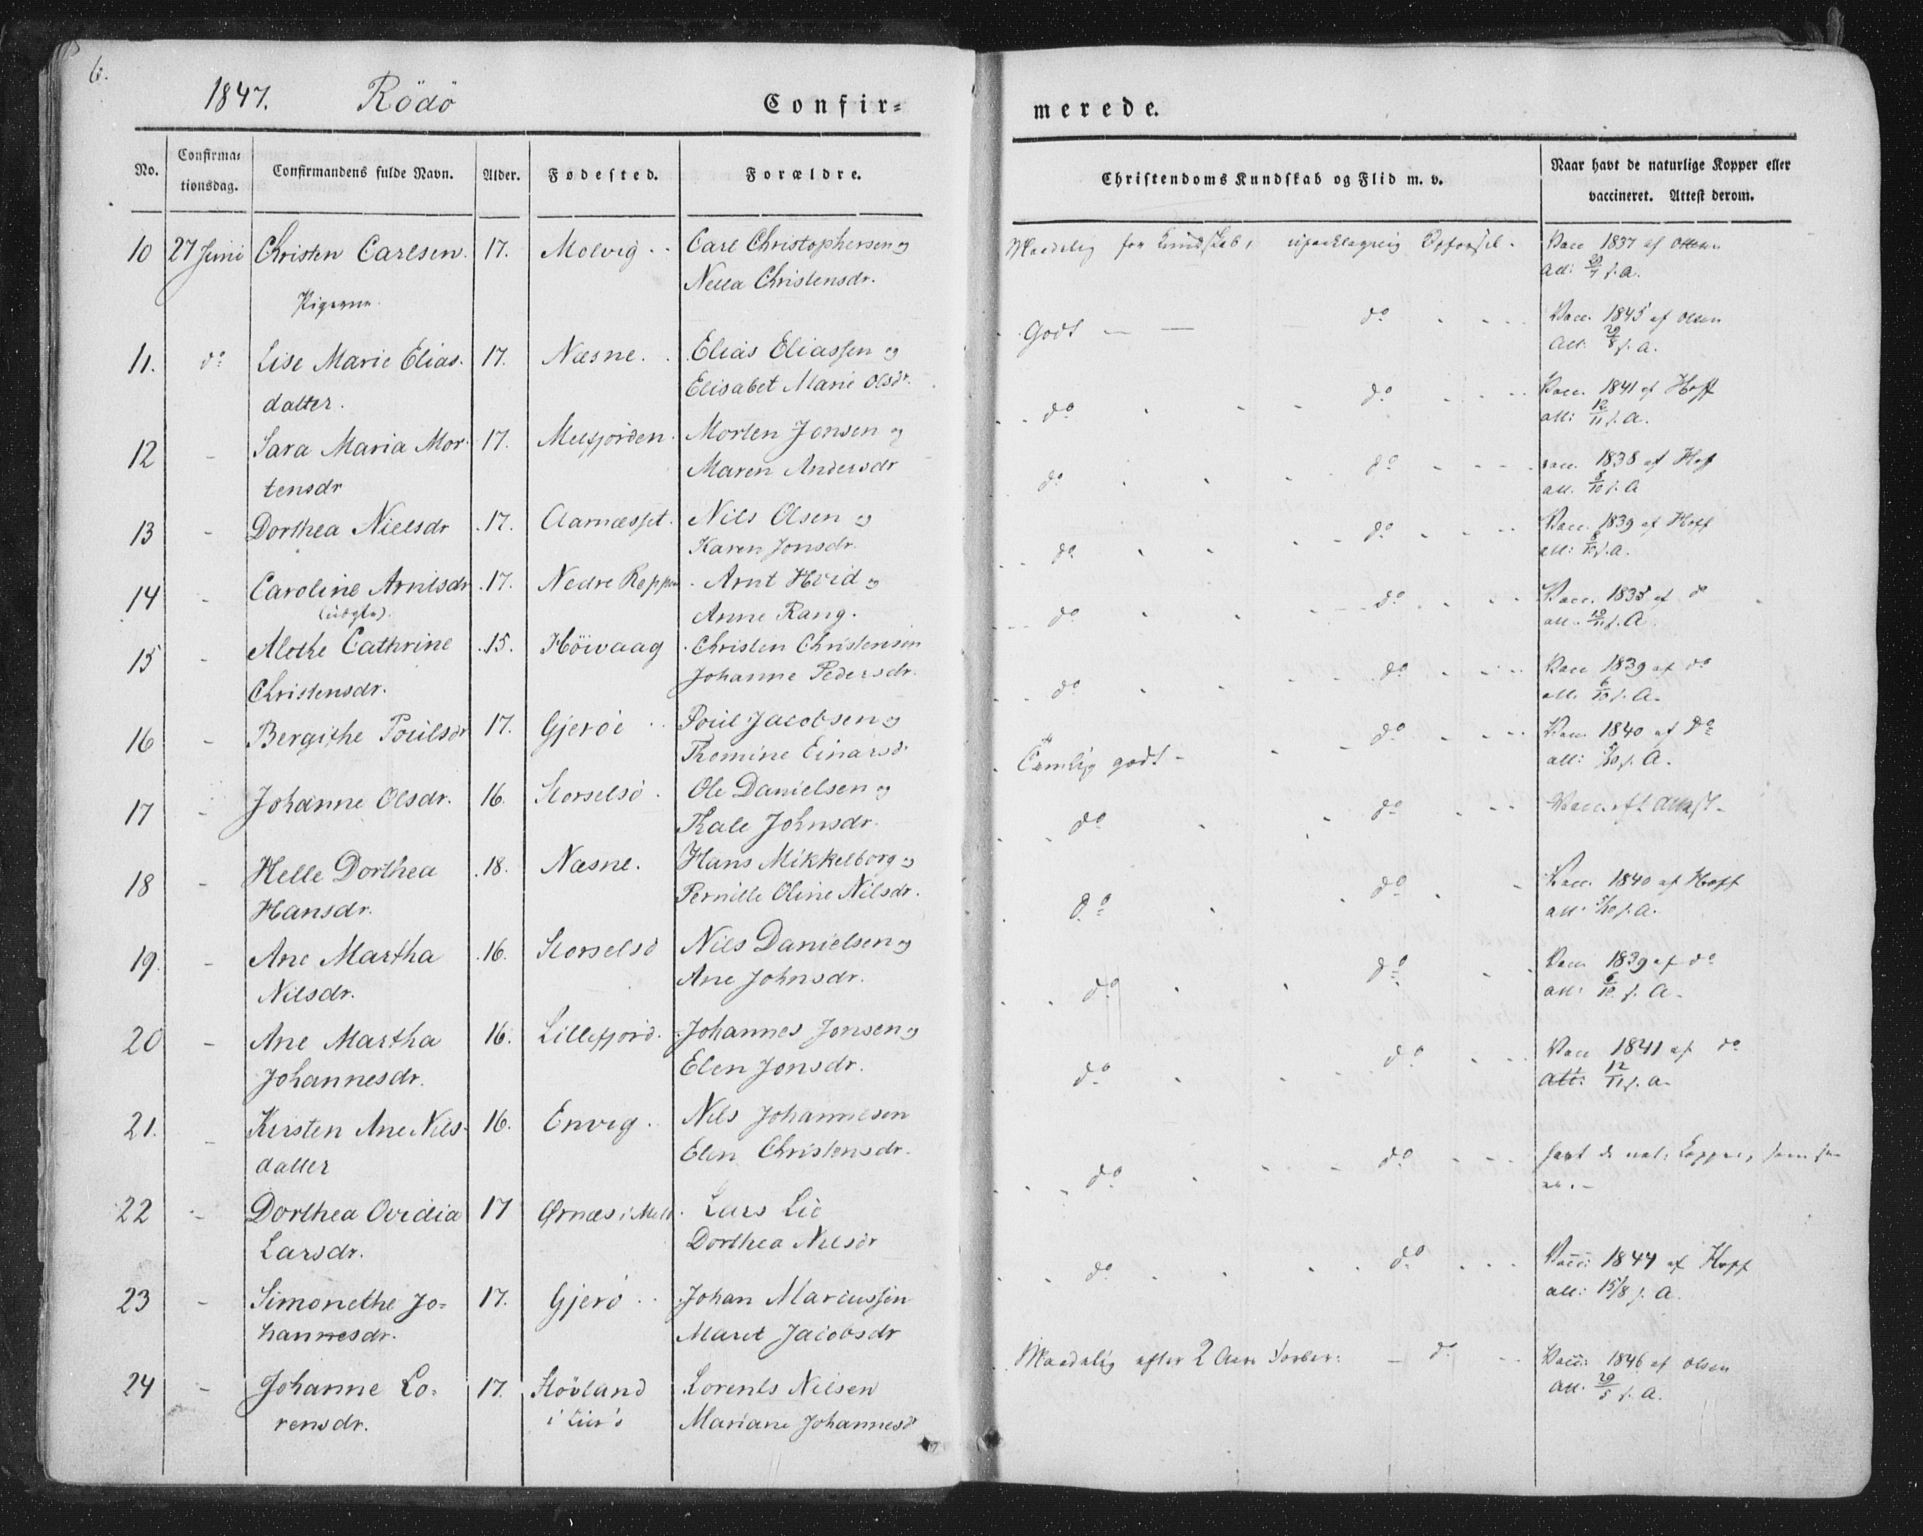 6.
1847. Rödö Confir= merede.
No. Confirma= tionsdag. Confirmandens fulde Navn. Alder. Fødested. Forældre. Christendoms Kundskab og Flid m. v. Naar havt de naturlige Kopper eller vaccineret. Attest derom.
10 27 Juni Christen Carlsen. 17. Molvig Carl Christophersen og Maadelig Kundskab, upaaklagelig Opførsel. Vacc 1837 af Ottesen
Nella Christensdr. att: 20/7 s. A.
Pigerne.
11. do Lise Marie Elias- 17. Næsne. Elias Eliassen og Godt do Vacc. 1845 af Olsen
datter. Elisabet Marie Olsdr. att: 20/8 s. A.
12 - Sara Maria Mor- 17. Melfjorden Morten Jonsen og do do Vacc. 1841 af Hoff
tensdr Maren Andersdr att: 12/11 s. A.
13 - Dorthea Nielsdr 17. Aarnæsset Nils Olsen og do do vacc. 1838 af Hoff
Karen Jonsdr. att. 8/10 s. A
14 - Caroline Arntsdr 17. Nedre Reppen Arnt Hvid og do do Vacc. 1839 af Hoff
(uægte). Anne Rang. att: 8/10 s. A.
15 - Alethe Cathrine 15. Höivaag Christen Christensen do do Vacc. 1835 af do
Christensdr. Johanne Pedersdr. att. s. A.
16 - Bergithe Poulsdr 17. Gjerøe Poul Jacobsen og do do Vacc 1839 af do
Thomine Einarsdr att. 6/10 s. A.
17 - Johanne Olsdr. 16. Storselsö Ole Danielsen og Temlig godt - do Vacc 1840 af do
Thale Johnsdr. att: s. A.
18 - Helle Dorthea 18. Næsne. Hans Mikkelborg og do do Vacc. Attest -
Hansdr. Pernille Oline Nilsdr.
19. - Ane Martha 16. Storselsö Nils Danielsen og do do Vacc. 1840 af Hoff
Nilsdr. Ane Johnsdr. att. s. A.
20 - Ane Martha 16. Lillefjord. Johannes Jonsen og do do Vacc 1839 af do
Johannesdr. Elen Jonsdr. att: 6/10 s. A.
21. - Kirsten Ane Nils- 16. Envig. Nils Johannesen do do Vacc 1841 af do
datter Elen Christensdr. att: 12/11 s. A.
22 - Dorthea Ovidia 17 Ørnæs i Mel Lars Lie do do havt de nat: Kopper,
Larsdr. Dorthea Nilsdr
23 - Simonethe Jo= 17. Gjerö Johan Mariussen do do Vacc: 1844 af Hoff
hannesdr. Maret Jacobsdr att: 15/8 s. A.
24 - Johanne Lo= 17. Støvland Lorents Nilsen Maadelig efter 2 Aars Forber: do Vacc: 1846 af Olsen
rensdr. i Mariane Johannesdr att. 29/5 s. A.